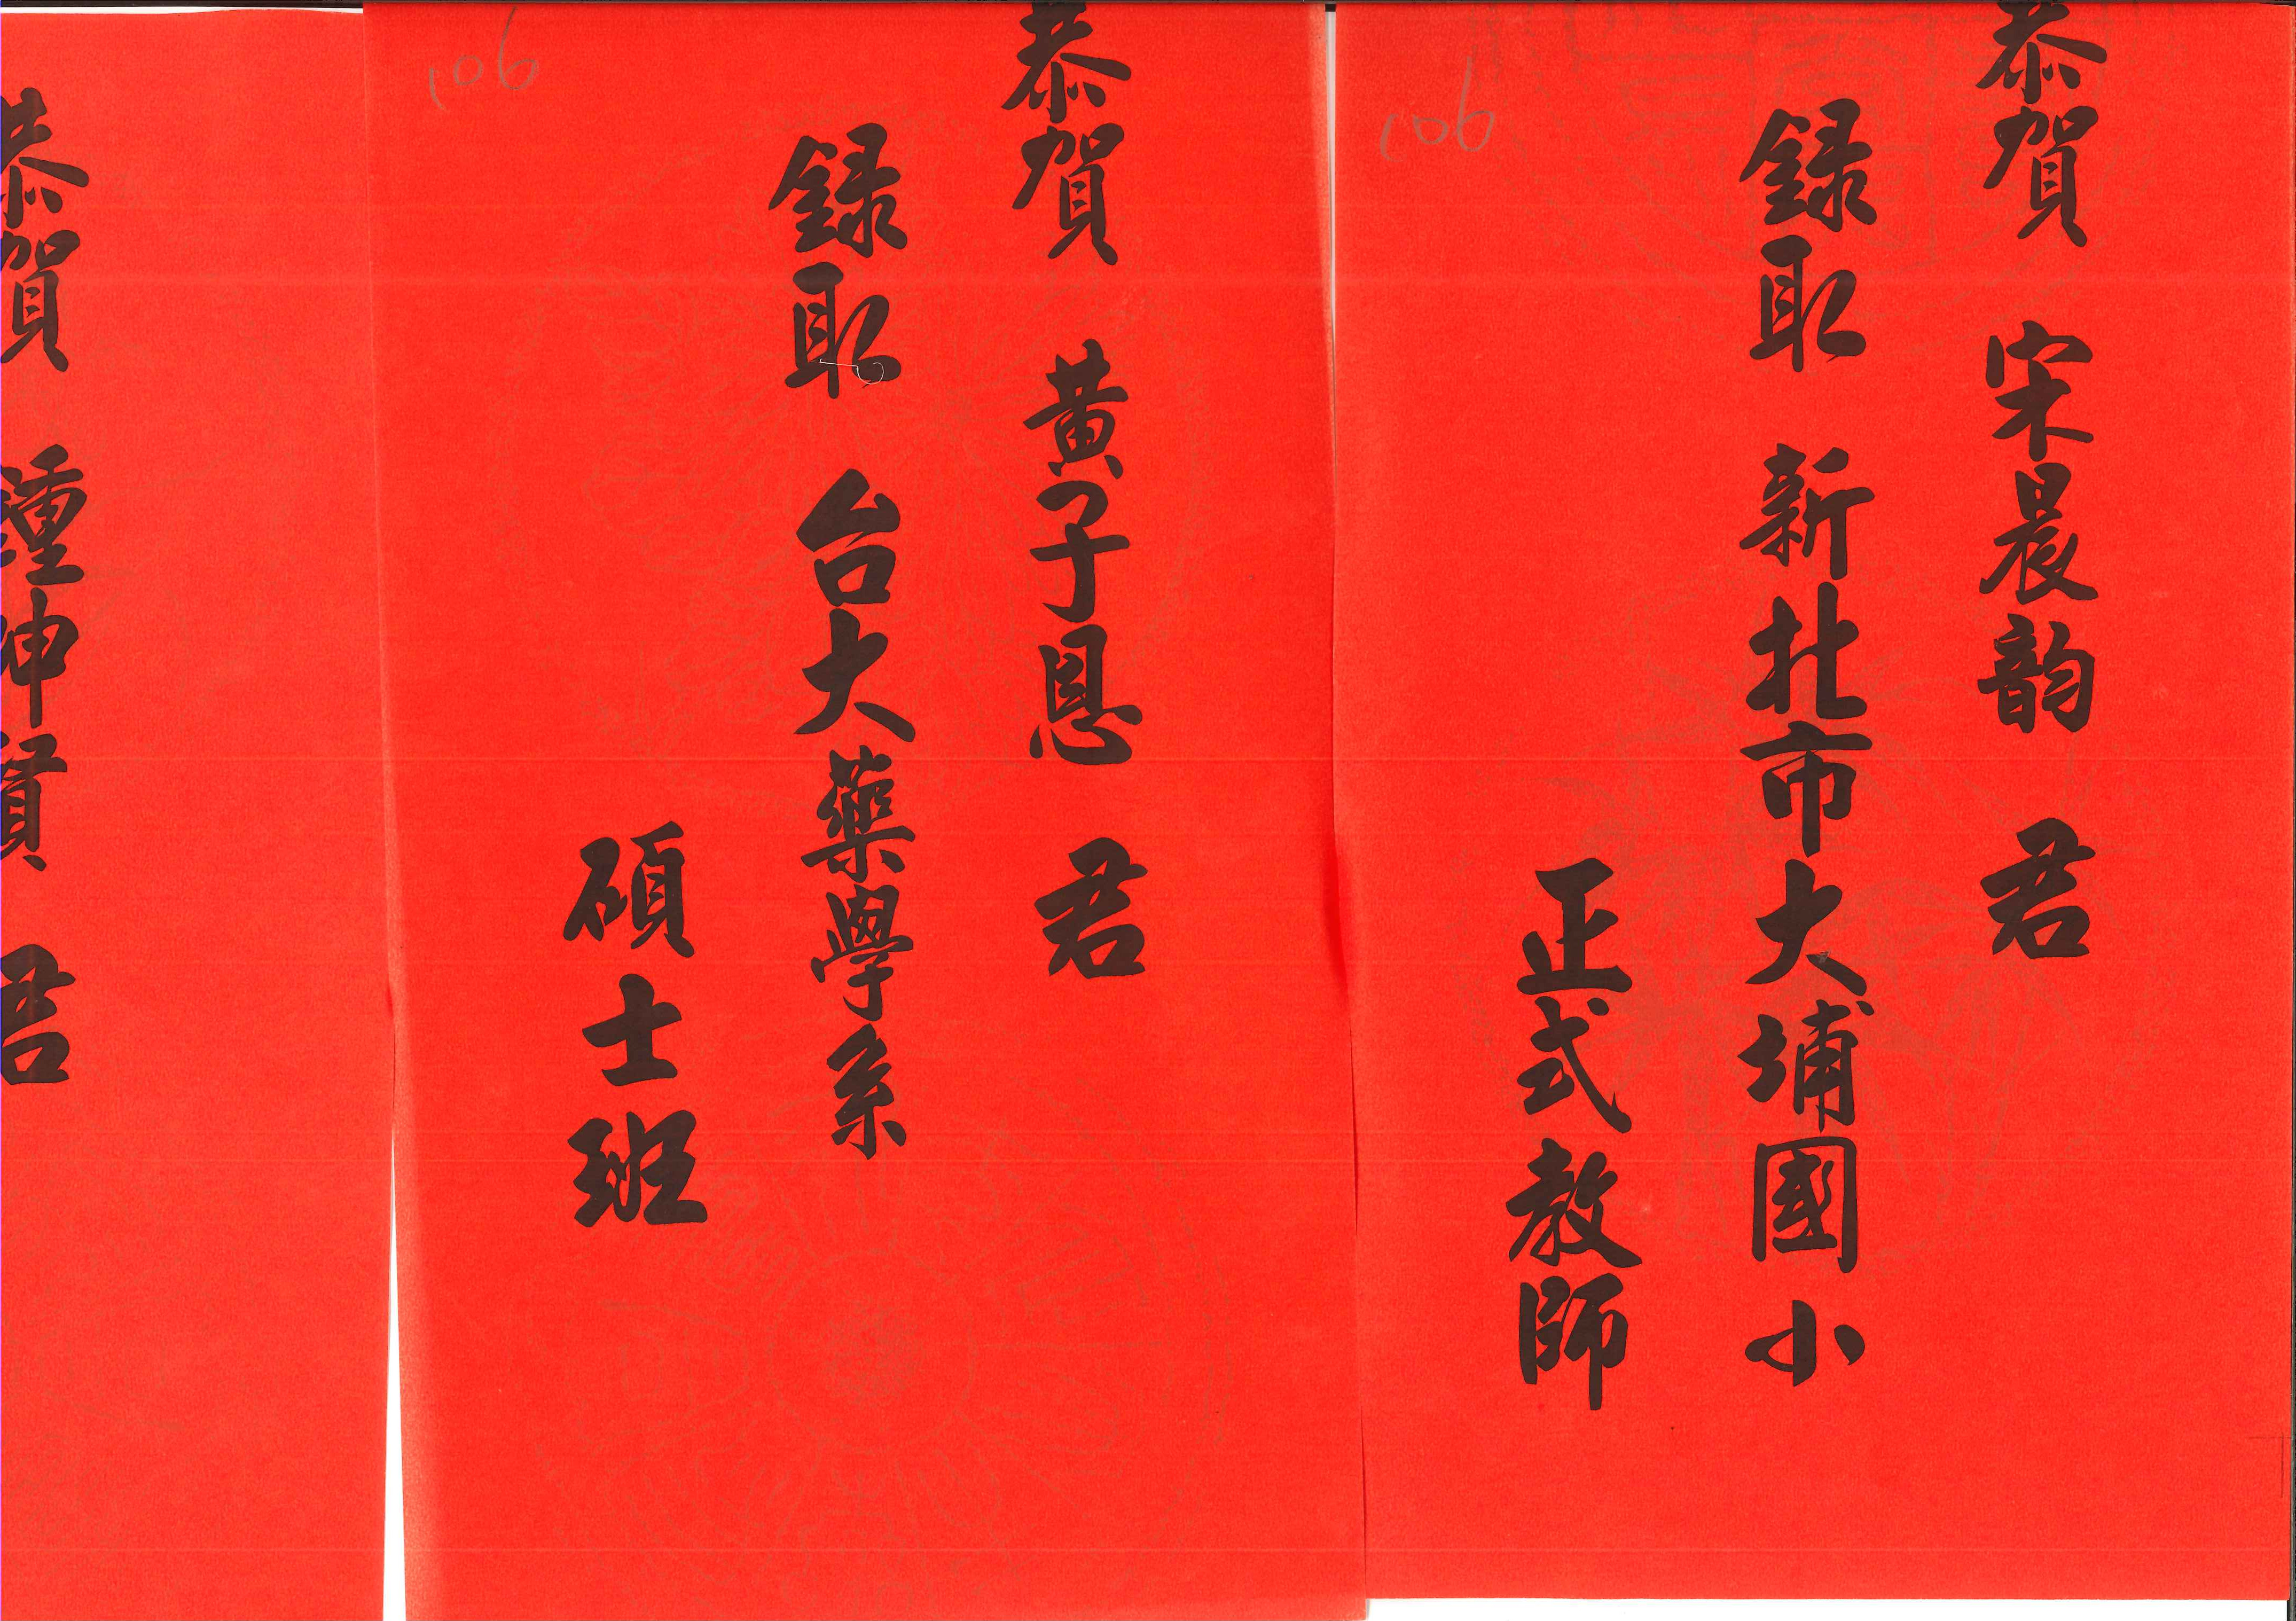 恭賀 宋晨韵 君
錄取 新北市大埔國小
正式教師
106
恭賀 黃子恩 君
錄取 台大藥學系
碩士班
106
恭賀 鍾坤賢 君